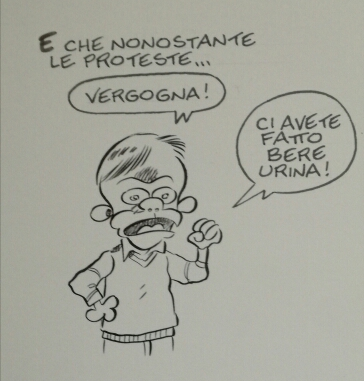 E CHE NONOSTANTE
LE PROTESTE...
VERGOGNA!
CI AVETE
FATTO
BERE
URINA!